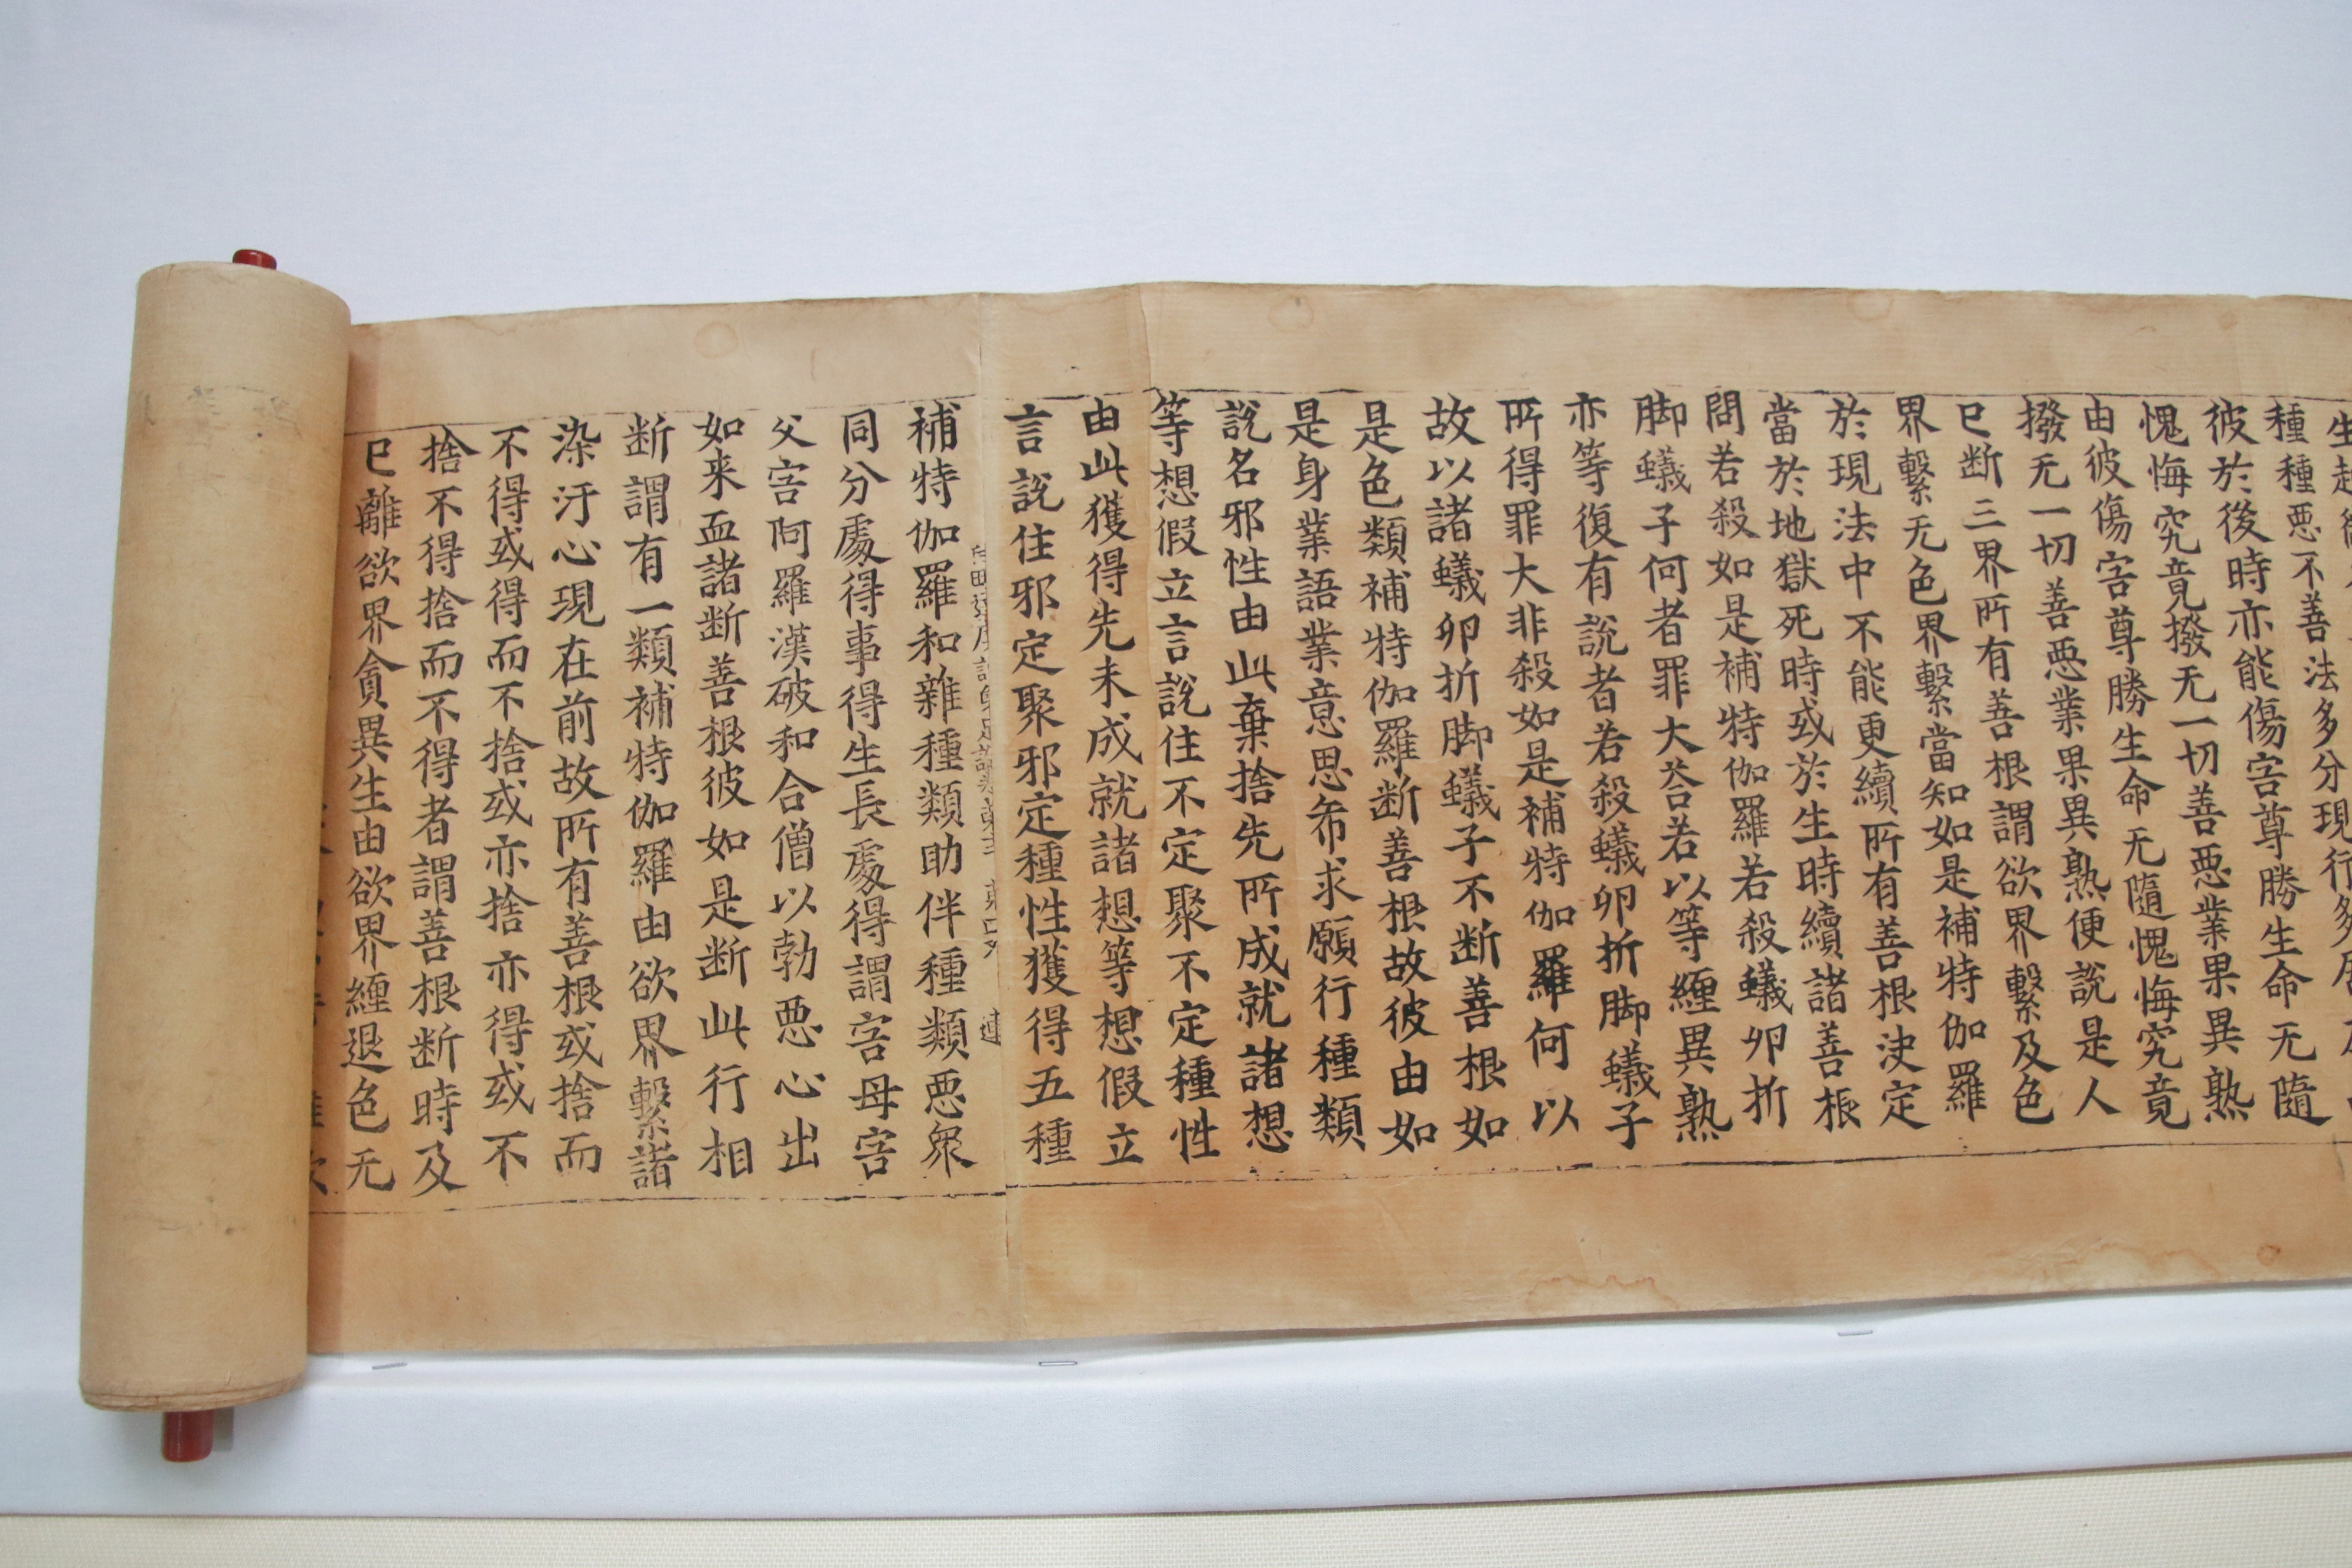 種種悪不善法多分現行多
彼於後時亦能傷害尊勝生命无隨
愧悔究竟撥无一切善悪業果異熟
由彼傷害尊勝生命无隨愧悔究竟
撥无一切善悪業果異熟便說是人
已断三界所有善根謂欲界繫及色
界繫无色界繫當知如是補特伽羅
於現法中不能更續所有善根決定
當於地獄死時或於生時續諸善根
問若殺如是補特伽羅若殺蟻卵折
脚蟻子何者罪大荅若以等纏異熟
亦等復有說者若殺蟻卵折脚蟻子
所得罪大非殺如是補特伽羅何以
故以諸蟻卵折脚蟻子不断善根如
是色類補特伽羅断善根故彼由如
是身業語業意思希求願行種類
說名邪性由此棄捨先所成就諸想
等想假立言說住不定聚不定種性
由此獲得先未成就諸想等想假立
言說住邪定聚邪定種性獲得五種
補特伽羅和雜種類助伴種類悪衆
同分處得事得生長處得謂害母害
父害阿羅漢破和合僧以勃悪心出
如来血諸断善根彼如是断此行相
断謂有一類補特伽羅由欲界繫諸
染汙心現在前故所有善根或捨而
不得或得而不捨或亦捨亦得或不
捨不得捨而不得者謂善根断時及
已離欲界貪異生由欲界纏退色无